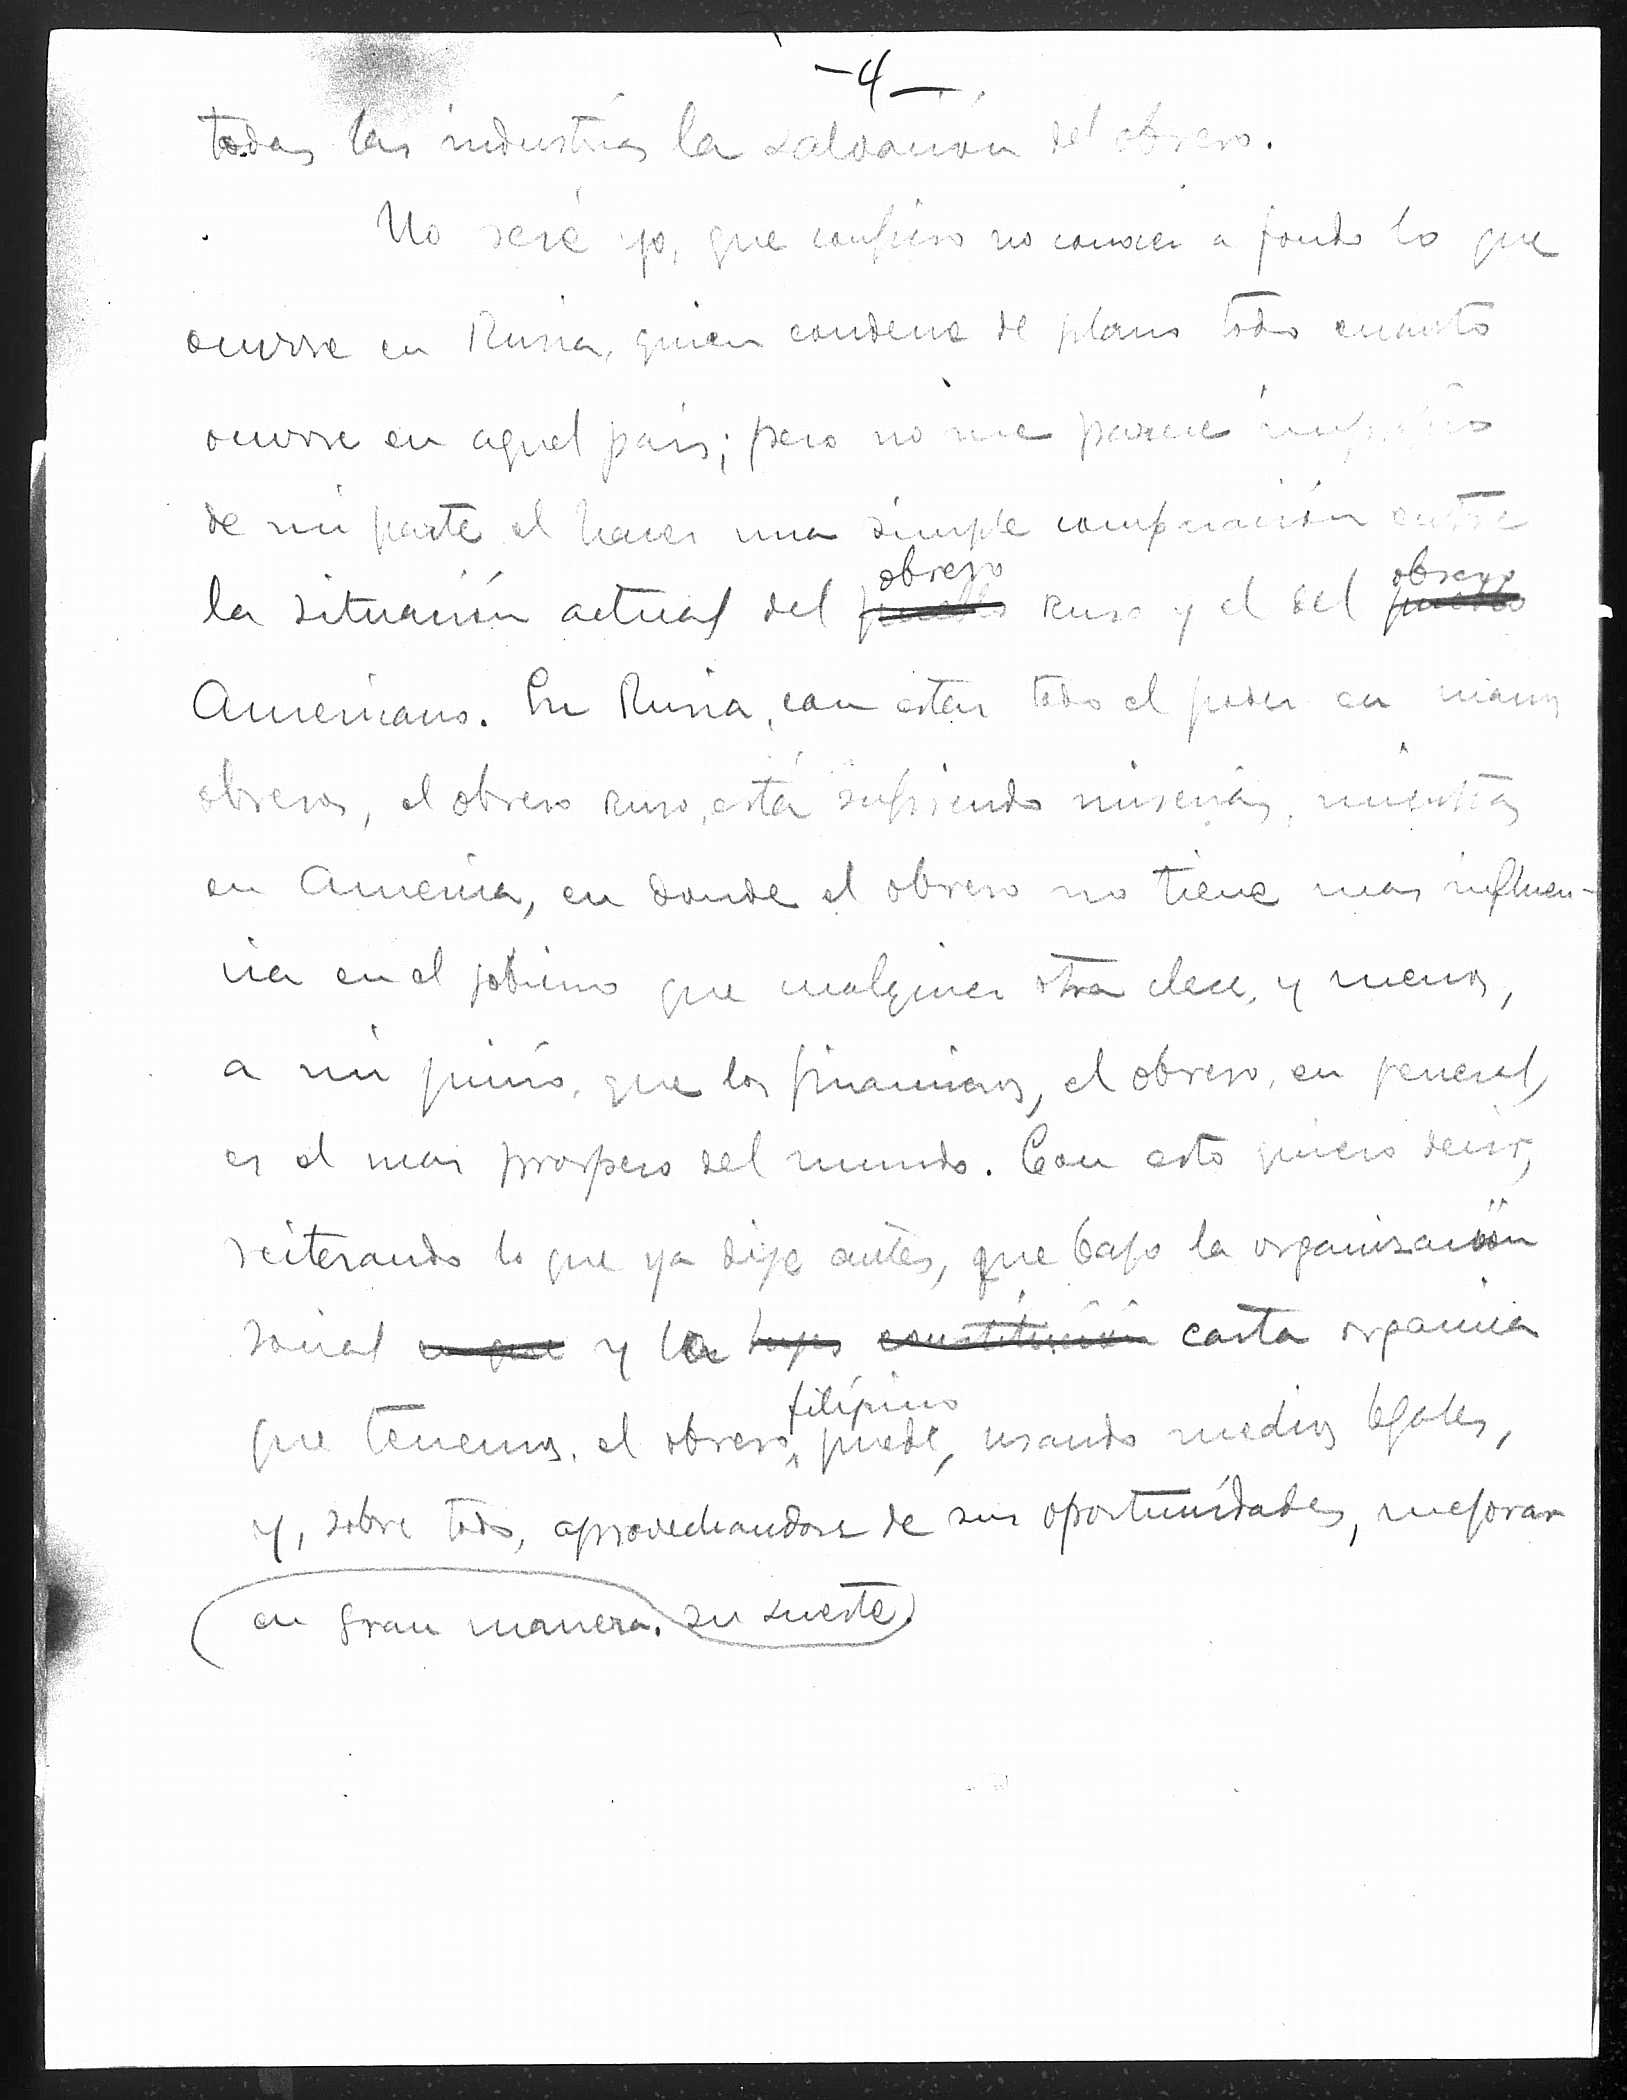 -4-
todas las industrias la salvación del obrero.
No seré yo, que confieso no conocer a fondo lo que
ocurre en Rusia, quien condene de plano todo cuanto
ocurre en aquel pais; pero no me parece
de mi parte el hacer una simple comparación entre
obrero obrero
la situación actual del pueblo ruso y el del pueblo
Americano. En Rusia, con estar todo el poder en manos
obreras, el obrero ruso, está sufriendo miserias, mientras
en America, en donde el obrero no tiene mas influen-
cia en el gobierno que cualquier otra clase, y menos,
a mi juicio, que los financieros, el obrero, en general,
es el mas prospero del mundo. Con esto quiero decir,
reiterando lo que ya dije antes, que bajo la organización
social en que y la leyes constitución carta organica
filipino
que tenemos, el obrero puede, usando medios legales,
y, sobre todo, aprovechandose de sus oportunidades, mejorar
en gran manera. su suerte.